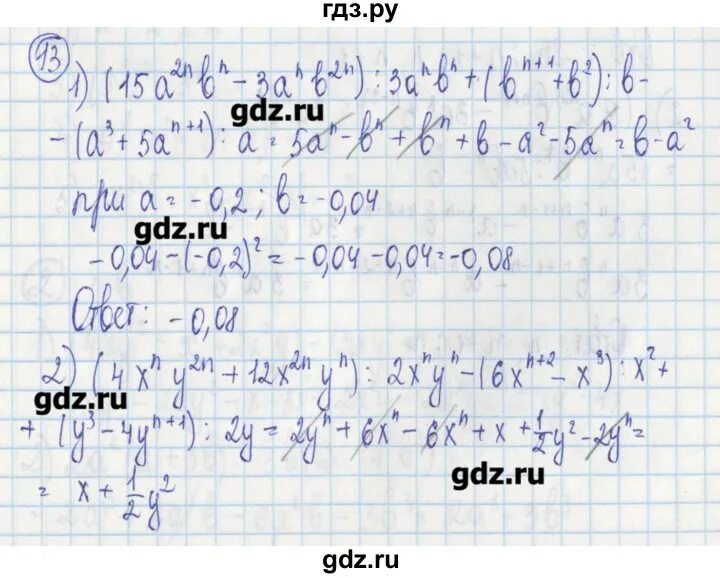 гдз.ру
93
1) (15a²ⁿbⁿ - 3aⁿb²ⁿ) : 3aⁿbⁿ + (bⁿ⁺¹ + b²) : b -
gdz.ru
- (a³ + 5aⁿ⁺¹) : a = 5aⁿ - bⁿ + bⁿ + b - a² - 5aⁿ = b - a²
при a = -0,2 ; b = -0,04
gdz.ru
-0,04 - (-0,2)² = -0,04 - 0,04 = -0,08
Ответ: -0,08
2) (4xⁿy²ⁿ + 12x²ⁿyⁿ) : 2xⁿyⁿ - (6xⁿ⁺² - x³) : x² +
gdz.ru
+ (y³ - 4yⁿ⁺¹) : 2y = 2yⁿ + 6xⁿ - 6xⁿ + x + 1/2y² - 2yⁿ =
gdz.ru
= x + 1/2y²
gdz.ru